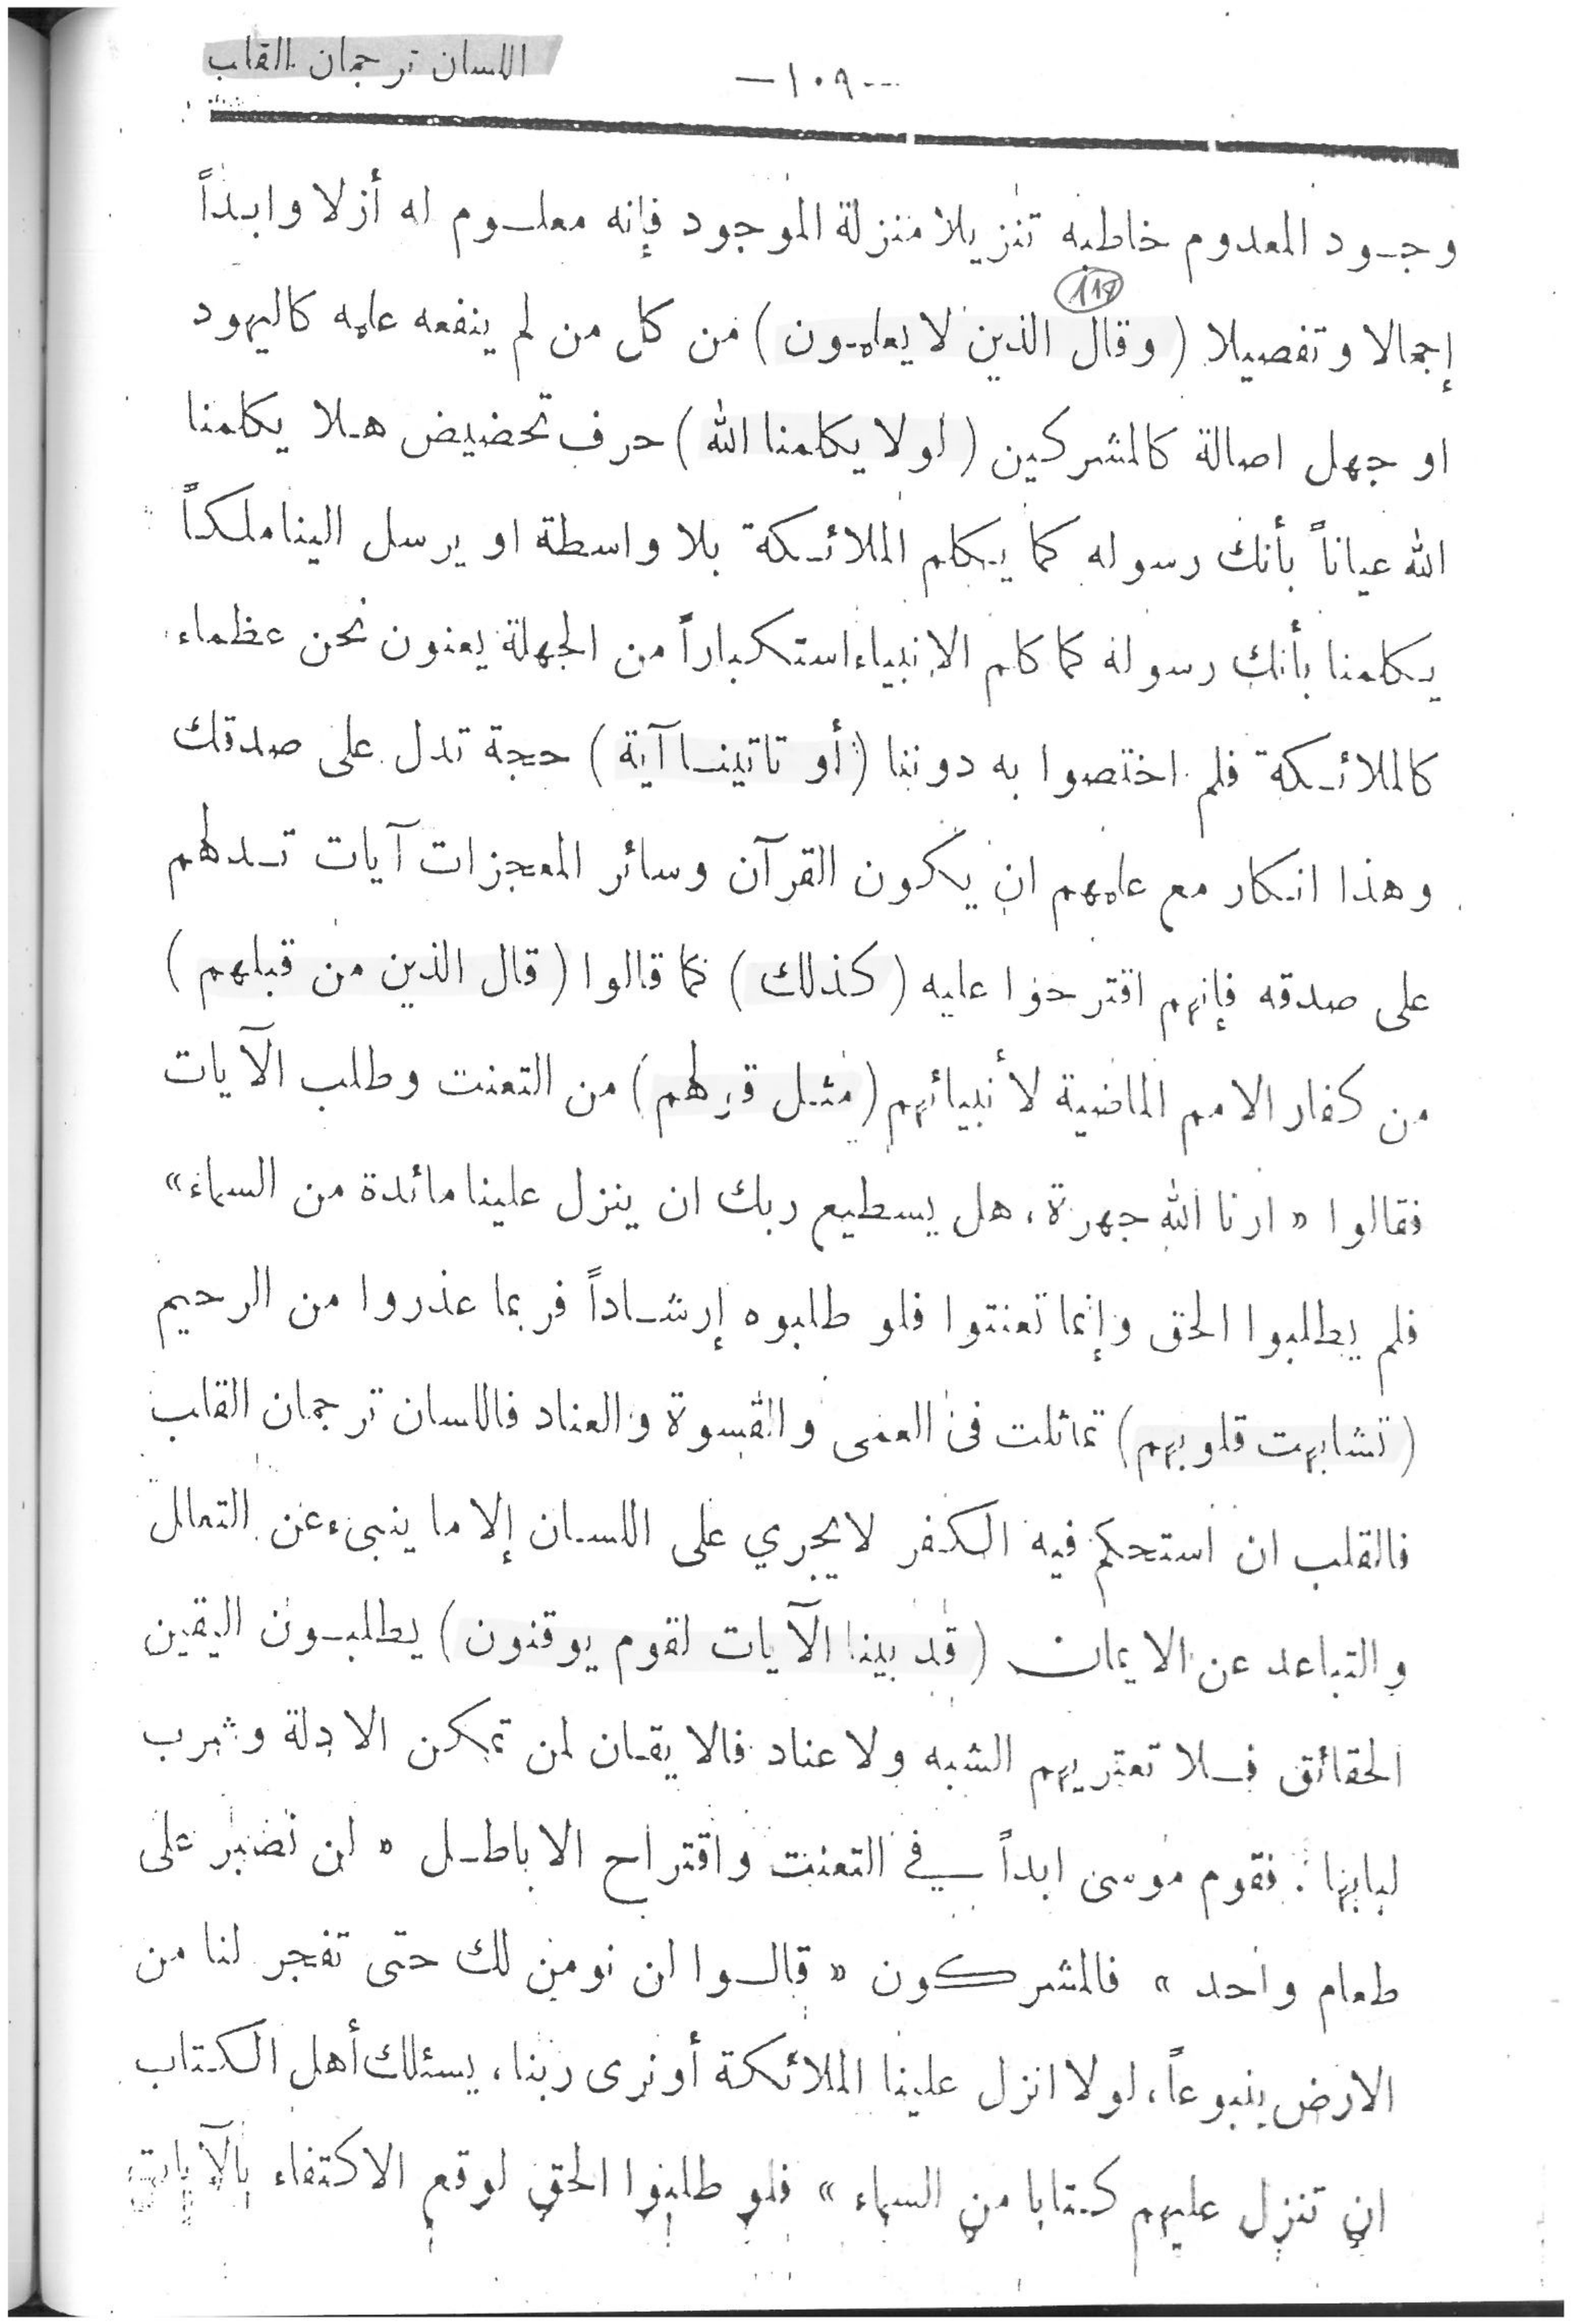 اللسان ترجمان القلب
—١٠٩—
وجود المعدوم خاطبه تنزيلا منزلة الموجود فإنه معلوم له أزلا وابداً
118
إجمالا وتفصيلا (وقال الذين لا يعلمون) من كل من لم ينفعه علمه كاليهود
او جهل اصالة كالمشركين (لولا يكلمنا الله) حرف تحضيض هلا يكلمنا
الله عياناً بأنك رسوله كما يكلم الملائكة بلا واسطة او يرسل الينا ملكاً
يكلمنا بأنك رسوله كما كلم الانبياء استكباراً من الجهلة يعنون نحن عظماء
كالملائكة فلم اختصوا به دوننا (أو تاتينا آية) حجة تدل على صدقك
وهذا انكار مع علمهم ان يكون القرآن وسائر المعجزات آيات تدلهم
على صدقه فإنهم اقترحوا عليه (كذلك) كما قالوا (قال الذين من قبلهم)
من كفار الامم الماضية لأنبيائهم (مثل قولهم) من التعنت وطلب الآيات
فقالوا « ارنا الله جهرة، هل يسطيع ربك ان ينزل علينا مائدة من السماء»
فلم يطلبوا الحق وإنما تعنتوا فلو طلبوه إرشاداً فربما عذروا من الرحيم
(تشابهت قلوبهم) تماثلت فى العمى والقسوة والعناد فاللسان ترجمان القلب
فالقلب ان استحكم فيه الكفر لا يجري على اللسان إلا ما ينبىء عن التعالل
والتباعد عن الايمان (قد بينا الآيات لقوم يوقنون) يطلبون اليقين
الحقائق فلا تعتريهم الشبه ولا عناد فالايقان لمن تمكن الادلة وشرب
لبابها : فقوم موسى ابداً في التعنت واقتراح الاباطل « لن نصبر على
طعام واحد » فالمشركون « قالوا لن نومن لك حتى تفجر لنا من
الارض ينبوعاً، لولا انزل علينا الملائكة أو نرى ربنا، يسئلك أهل الكتاب
ان تنزل عليهم كتابا من السماء » فلو طلبوا الحق لوقع الاكتفاء بالآيات